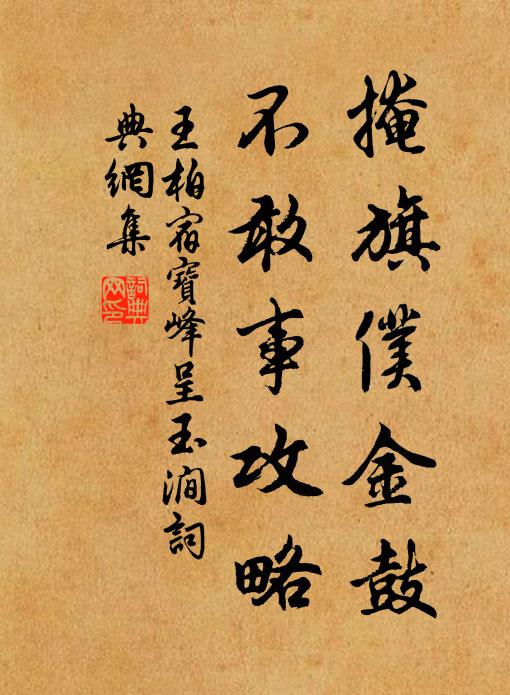 掩旗僕金鼓
不敢事攻略
王柏宿寶峰呈玉澗詞
典網集
詞典网印